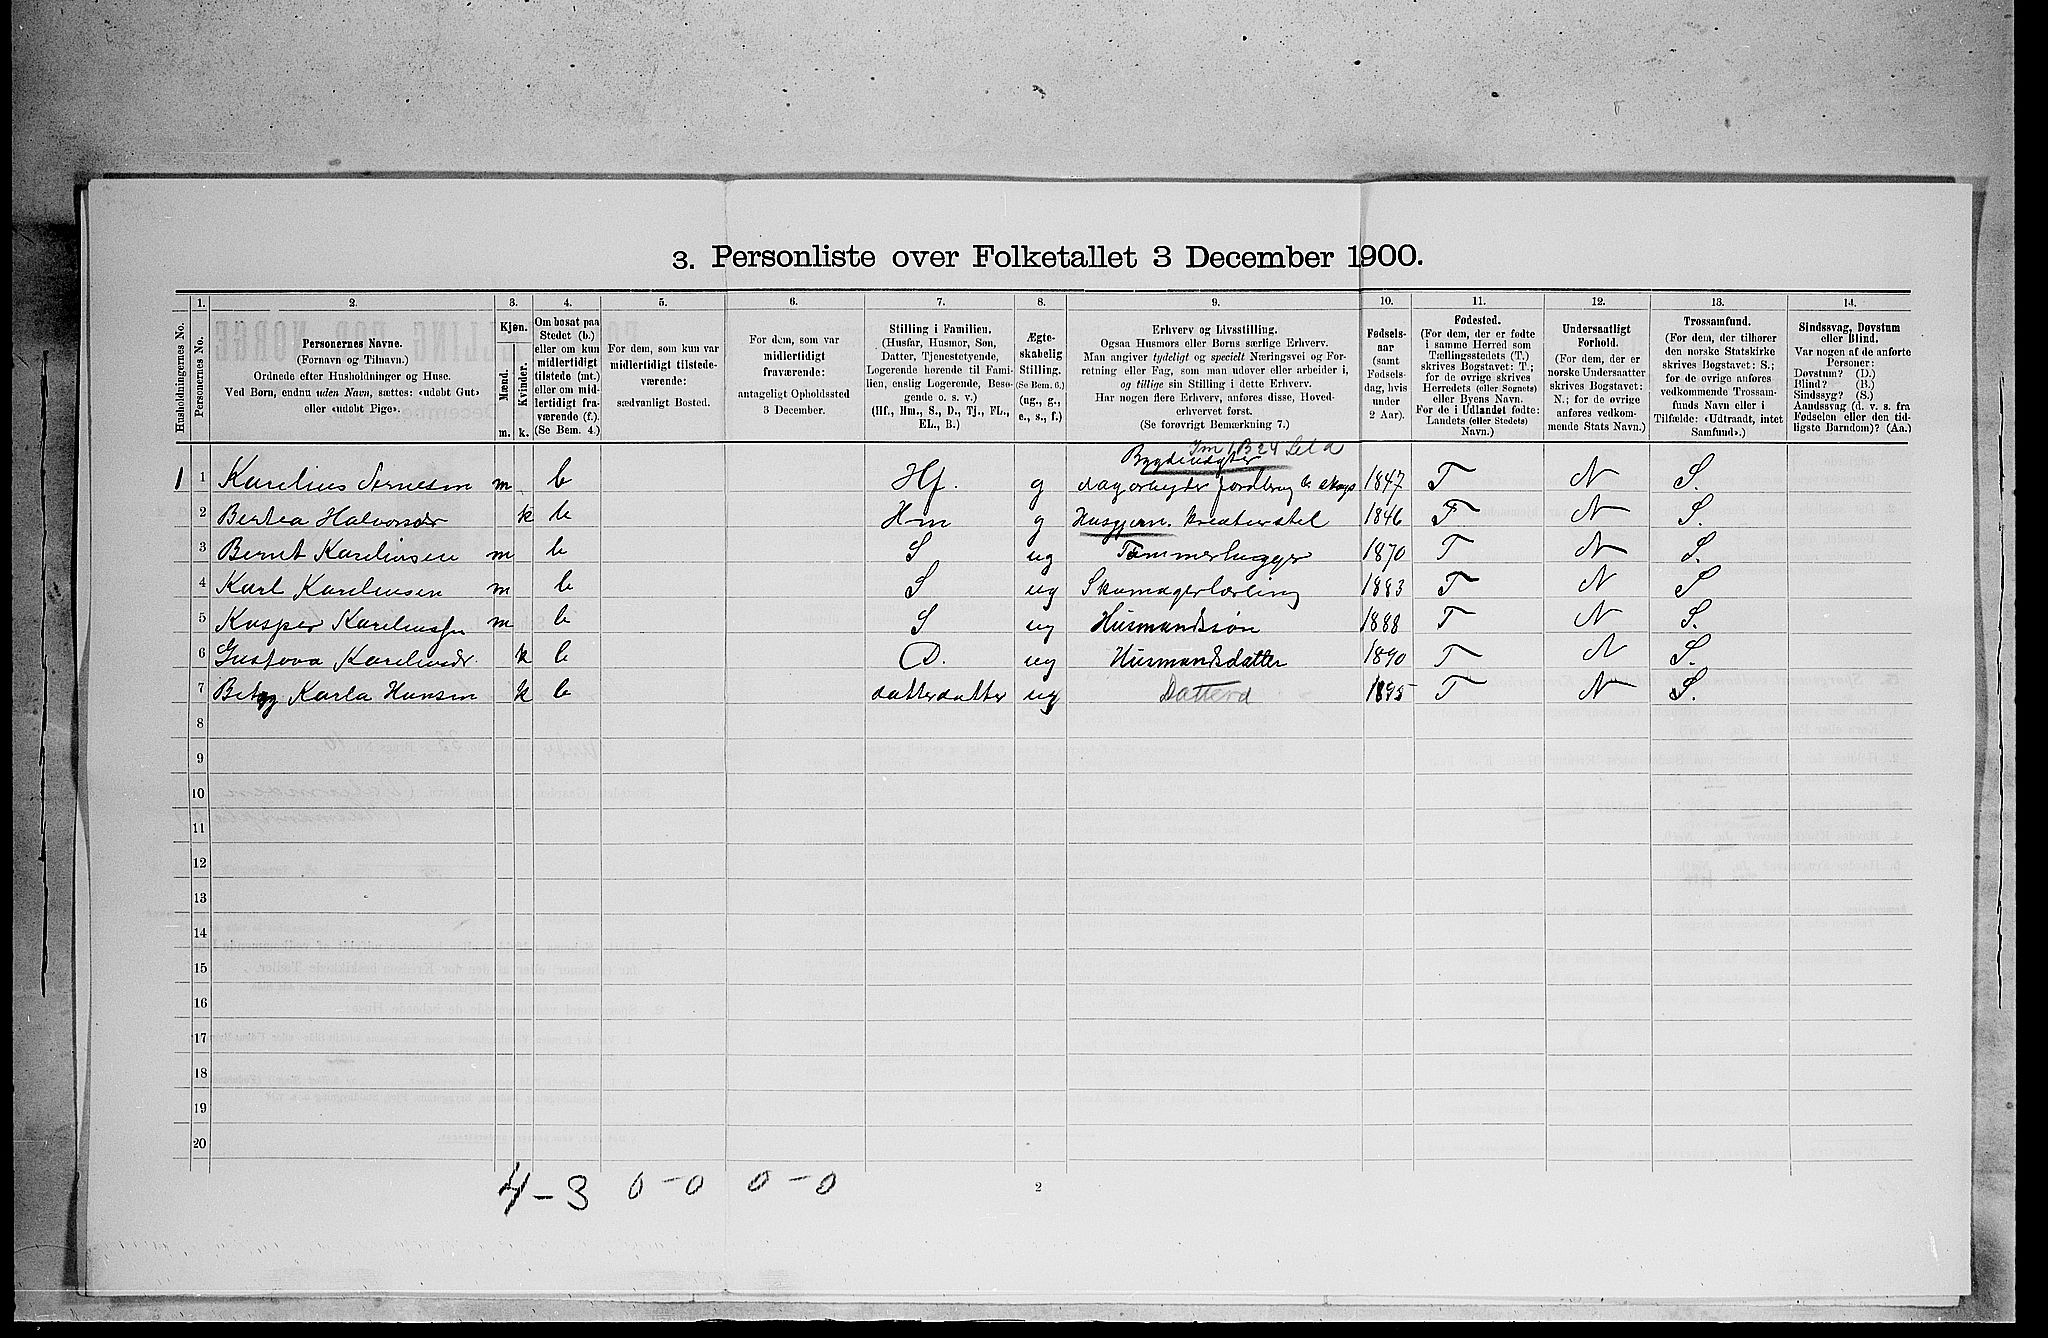 3. Personliste over Folketallet 3 December 1900.
1. 2. 3. 4. 5. 6. 7. 8. 9. 10. 11. 12. 13. 14.
Husholdningernes No.
Personernes No.
Personernes Navne.
(Fornavn og Tilnavn.)
Ordnede efter Husholdninger og Huse.
Ved Børn, endnu uden Navn, sættes: «udøbt Gut»
eller «udøbt Pige».
Kjøn.
Mænd.
Kvinder.
m. k.
Om bosat paa
Stedet (b.)
eller om kun
midlertidigt
tilstede (mt.)
eller om mid-
lertidigt fra-
værende (f.).
(Se Bem. 4.)
For dem, som kun var
midlertidigt tilstede-
værende:
sædvanligt Bosted.
For dem, som var
midlertidigt
fraværende:
antageligt Opholdssted
3 December.
Stilling i Familien.
(Husfar, Husmor, Søn,
Datter, Tjenestetyende,
Logerende hørende til Fami-
lien, enslig Logerende, Besø-
gende o. s. v.)
(Hf., Hm., S., D., Tj., FL.,
EL., B.)
Ægte-
skabelig
Stilling.
(Se Bem. 6.)
(ug., g.,
e., s., f.)
Erhverv og Livsstilling.
Ogsaa Husmors eller Børns særlige Erhverv.
Man angiver tydeligt og specielt Næringsvei og For-
retning eller Fag, som man udøver eller arbeider i,
og tillige sin Stilling i dette Erhverv.
Har nogen flere Erhverv, anføres disse, Hoved-
erhvervet først.
(Se forøvrigt Bemærkning 7.)
Fødsels-
aar
(samt
Fødsels-
dag, hvis
under
2 Aar).
Fødested.
(For dem, der er fødte
i samme Herred som
Tællingsstedets (T.)
skrives Bogstavet: T.;
for de øvrige skrives
Herredets (eller Sognets)
eller Byens Navn.
For de i Udlandet fødte:
Landets (eller Stedets)
Navn.)
Undersaatligt
Forhold.
(For dem, der er
norske Undersaatter
skrives Bogstavet:
N.; for de øvrige
anføres vedkom-
mende Stats Navn.)
Trossamfund.
(For dem, der tilhører
den norske Statskirke
skrives Bogstavet: S.;
for de øvrige anføres
vedkommende Trossam-
funds Navn eller i
Tilfælde: «Udtraadt, intet
Samfund».)
Sindssvag, Døvstum
eller Blind.
Var nogen af de anførte
Personer:
Døvstum? (D.)
Blind? (B.)
Sindssyg? (S.)
Aandssvag (d. v. s. fra
Fødselen eller den tid-
ligste Barndom)? (Aa.)
1 1 Karelius Arnesen m b Hf. g dagarbeyder jordbrug & skogs 1847 T N S.
2 Bertea Halvorsdr k b Hm g Husgjern. kreaturstel 1846 T N S.
3 Bernt Kareliusen m b S ug Tømmerhugger 1870 T N S.
4 Karl Kareliusen m b S ug Skomagerlærling 1883 T N S
5 Kasper Kareliussen m b S ug Husmandssøn 1888 T N S.
6 Gustava Kareliusdr. k b D. ug Husmandsdatter 1890 T N S.
7 Betsy Karla Hansen k b datterdatter ug Datterd 1895 T N S.
8
9
10
11
12
13
14
15
16
17
18
19
20
4-3 0-0 0-0
2